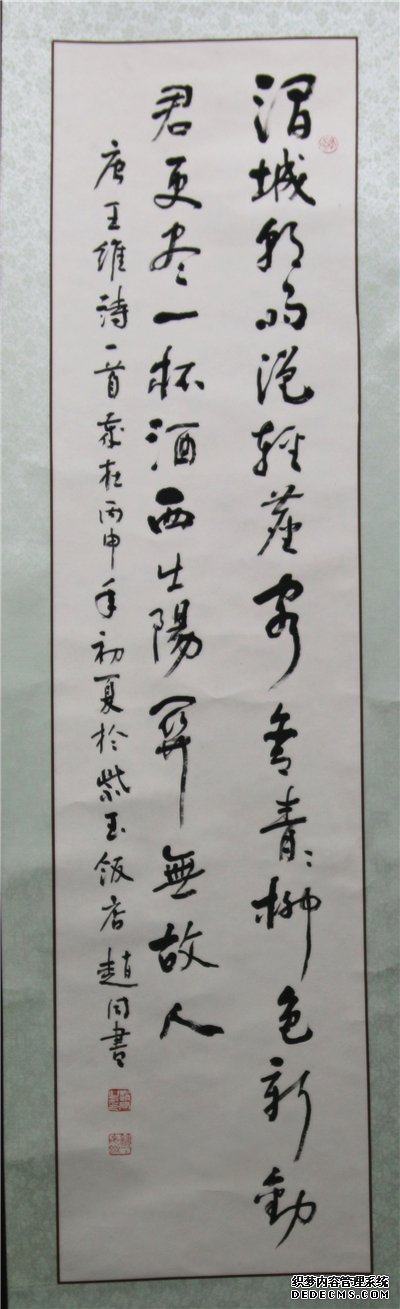 渭城朝雨浥輕塵客舍青々柳色新勸
君更尽一杯酒西出陽關無故人
唐王維詩一首歲在丙申年初夏於紫玉飯店趙同書
织梦内容管理系统
DEDECMS.COM